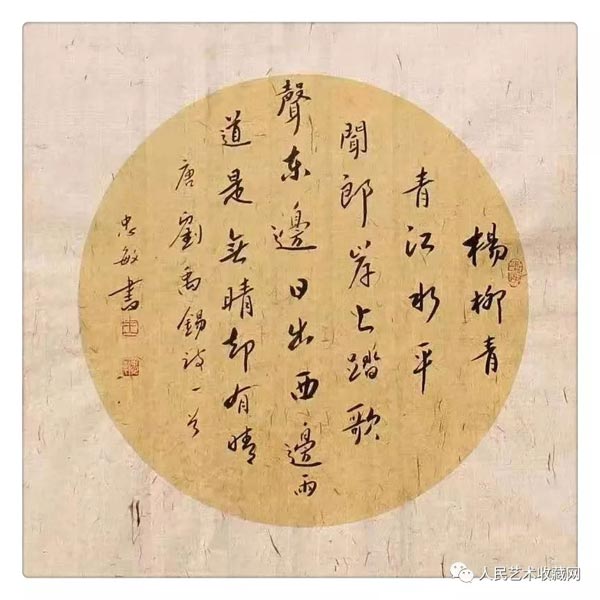 楊柳青
青江水平
聞郎岸上踏歌
聲東邊日出西邊雨
道是無晴却有晴
唐劉禹錫詩一首
忠敏書
人民艺术收藏网